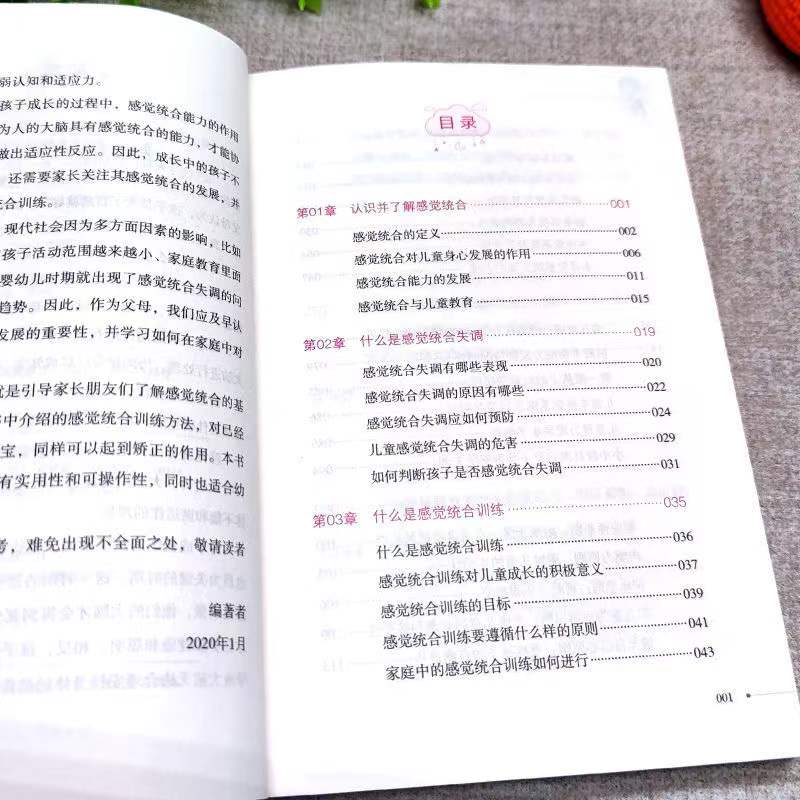 弱认知和适应力。
孩子成长的过程中，感觉统合能力的作用
为人的大脑具有感觉统合的能力，才能协
做出适应性反应。因此，成长中的孩子不
还需要家长关注其感觉统合的发展，并
统合训练。
现代社会因为多方面因素的影响，比如
孩子活动范围越来越小、家庭教育里面
婴幼儿时期就出现了感觉统合失调的问
趋势。因此，作为父母，我们应及早认
发展的重要性，并学习如何在家庭中对
就是引导家长朋友们了解感觉统合的基
中介绍的感觉统合训练方法，对已经
宝，同样可以起到矫正的作用。本书
有实用性和可操作性，同时也适合幼
考，难免出现不全面之处，敬请读者
编著者
2020年1月
目录
第01章 认识并了解感觉统合 001
感觉统合的定义 002
感觉统合对儿童身心发展的作用 006
感觉统合能力的发展 011
感觉统合与儿童教育 015
第02章 什么是感觉统合失调 019
感觉统合失调有哪些表现 020
感觉统合失调的原因有哪些 022
感觉统合失调应如何预防 024
儿童感觉统合失调的危害 029
如何判断孩子是否感觉统合失调 031
第03章 什么是感觉统合训练 035
什么是感觉统合训练 036
感觉统合训练对儿童成长的积极意义 037
感觉统合训练的目标 039
感觉统合训练要遵循什么样的原则 041
家庭中的感觉统合训练如何进行 043
001